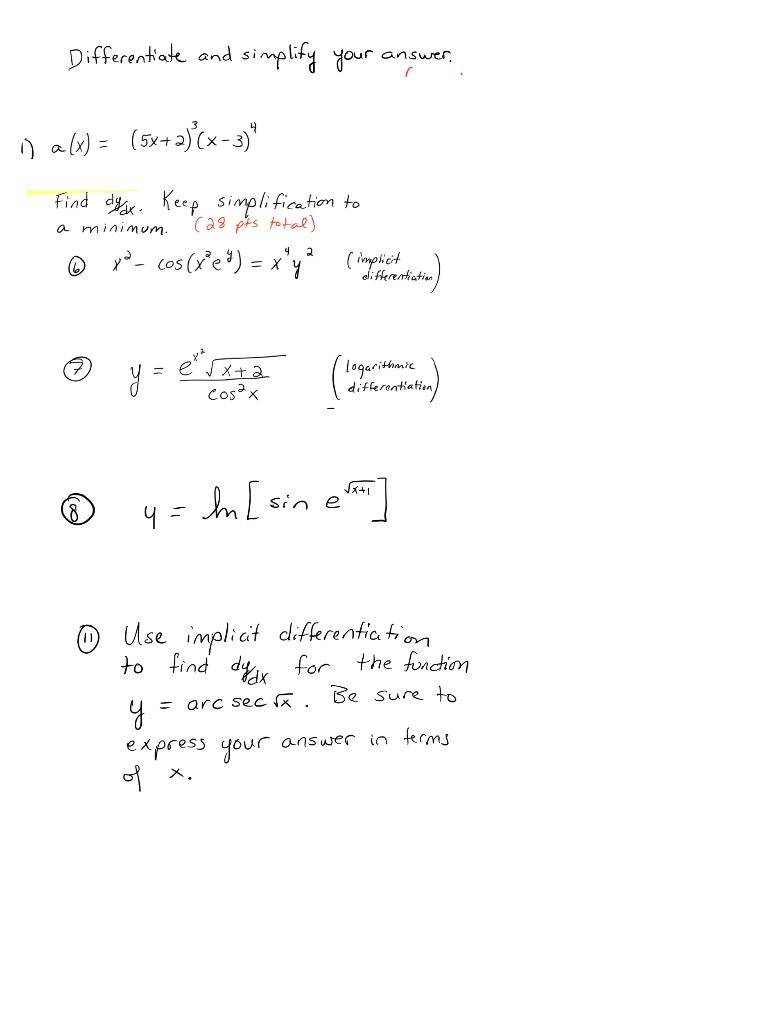 Differentiate and simplify your answer.
1) a(x) = (5x+2)³(x-3)⁴
Find dy/dx. Keep simplification to
a minimum. (28 pts total)
⑥ x² - cos(x²eʸ) = x⁴y² (implicit differentiation)
⑦ y = e^x² √x+2 / cos²x (logarithmic differentiation)
⑧ y = ln[sin e^√x+1]
⑪ Use implicit differentiation
to find dy/dx for the function
y = arc sec √x. Be sure to
express your answer in terms
of x.